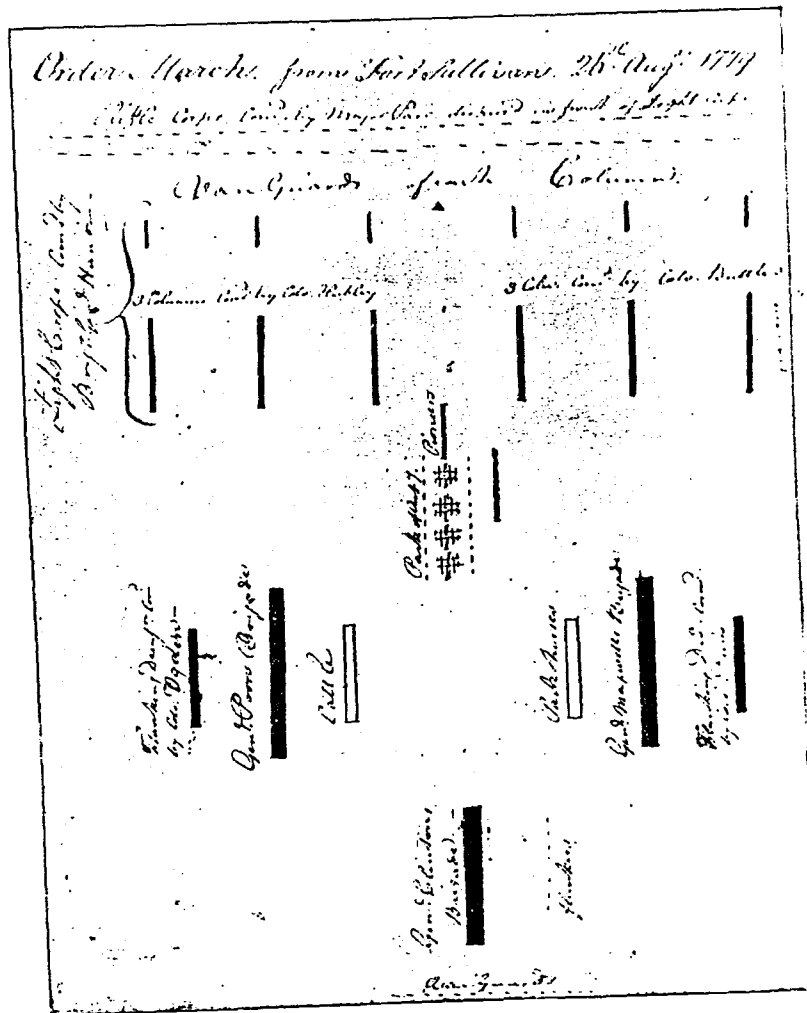 Order March from Fort Sullivan 26th Augt 1779
Rifle Corps Comd by Major Parr in front of Light
Van Guards of each Column
Light Corps Comd by
Brigr Genl Hand
3 Columns Comd by Colo. Hubley
3 Colms Comd by Colo. Butler
Pioneers
Park of Arty
Flanking Divisn Com
by Col. Ogden
Genl. Poors Brigade
Cattle
Pack Horses
Genl Maxwells Brigade
Flanking Divn Com
by
Genl Clintons
Brigade
flankers
Rear Guards